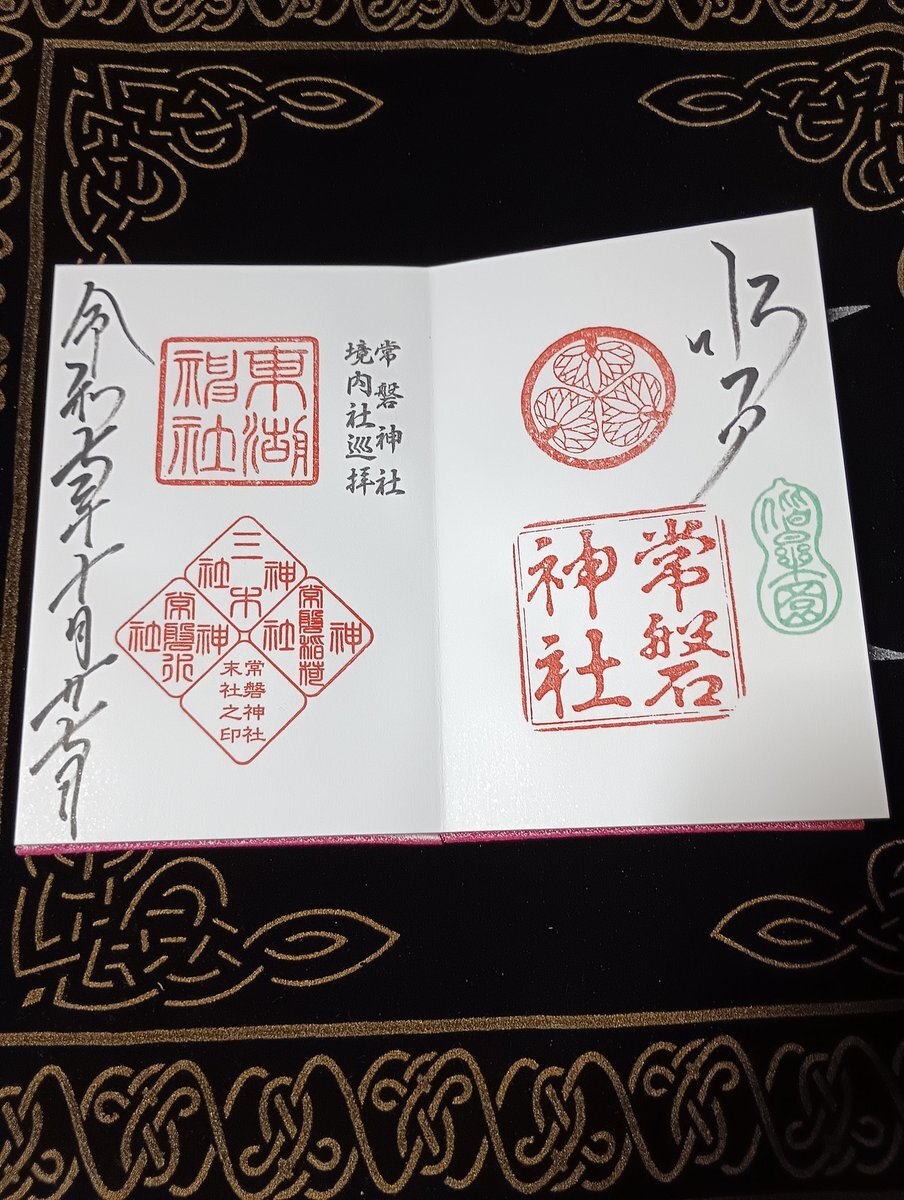 水戸
常磐神社
偕楽園
常磐神社
境内社巡拝
東湖
神社
三木神社
常磐稲荷神社
常磐水神社
常磐神社
末社之印
令和七年十月廿七日